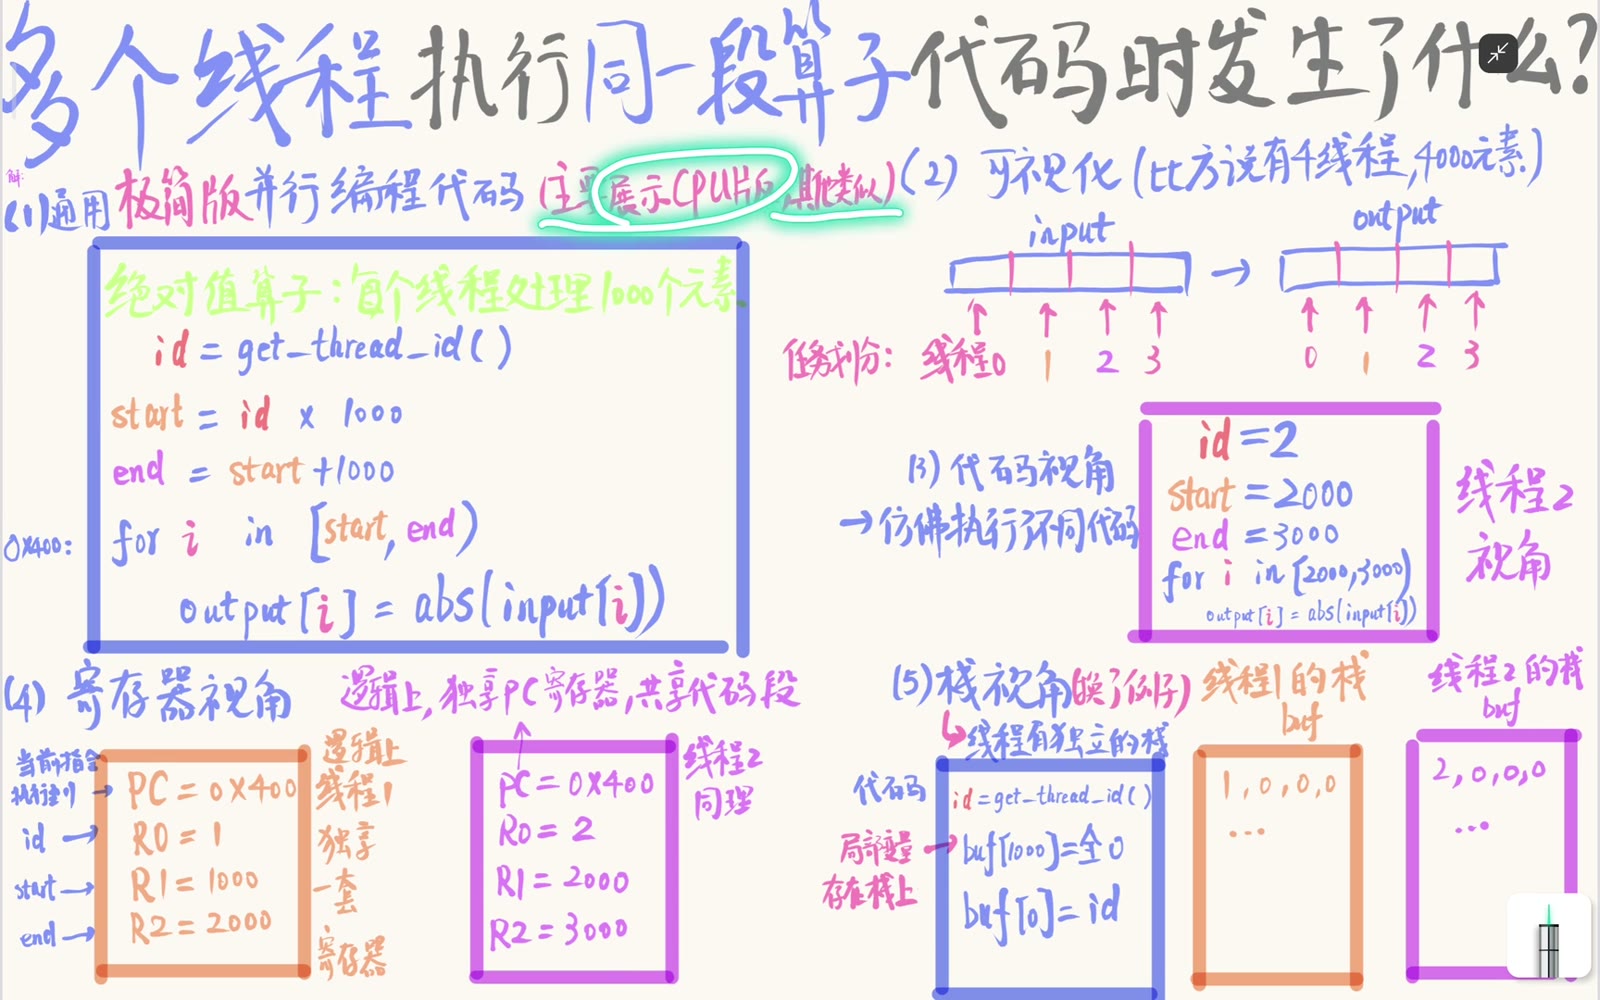 多个线程执行同一段算子代码时发生了什么?
解:
(1)通用极简版并行编程代码(主要展示CPU版,其他类似)
绝对值算子:每个线程处理1000个元素
id = get_thread_id()
start = id x 1000
end = start+1000
0x400: for i in [start, end)
output[i] = abs(input[i])
(2) 可视化(比方说有4线程,4000元素)
input → output
任务划分: 线程0 1 2 3 0 1 2 3
(3) 代码视角
→仿佛执行了不同代码
id=2
start=2000
end=3000
for i in [2000,3000)
output[i] = abs(input[i])
线程2
视角
(4) 寄存器视角 逻辑上,独享PC寄存器,共享代码段
当前指令
执行到 → PC=0x400
id → R0=1
start → R1=1000
end → R2=2000
逻辑上
线程1
独享
一套
寄存器
PC=0x400
R0=2
R1=2000
R2=3000
线程2
同理
(5)栈视角(换了例子)
线程有独立的栈
代码
id=get_thread_id()
局部变量
存在栈上
→ buf[1000]=全0
buf[0]=id
线程1的栈
buf
1,0,0,0
...
线程2的栈
buf
2,0,0,0
...